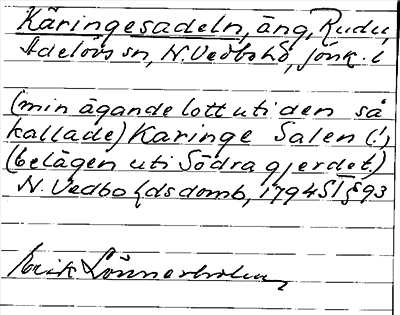 Käringesadeln, äng, Rudu,
Adelövs sn, N. Vedbo hd, Jönk. l
(min ägande lott uti den så
kallade) Karinge Salen (!,
(belägen uti Södra gjerdet.)
N. Vedbo hdsdomb, 1794 ST § 93
Erik Lönnerholm